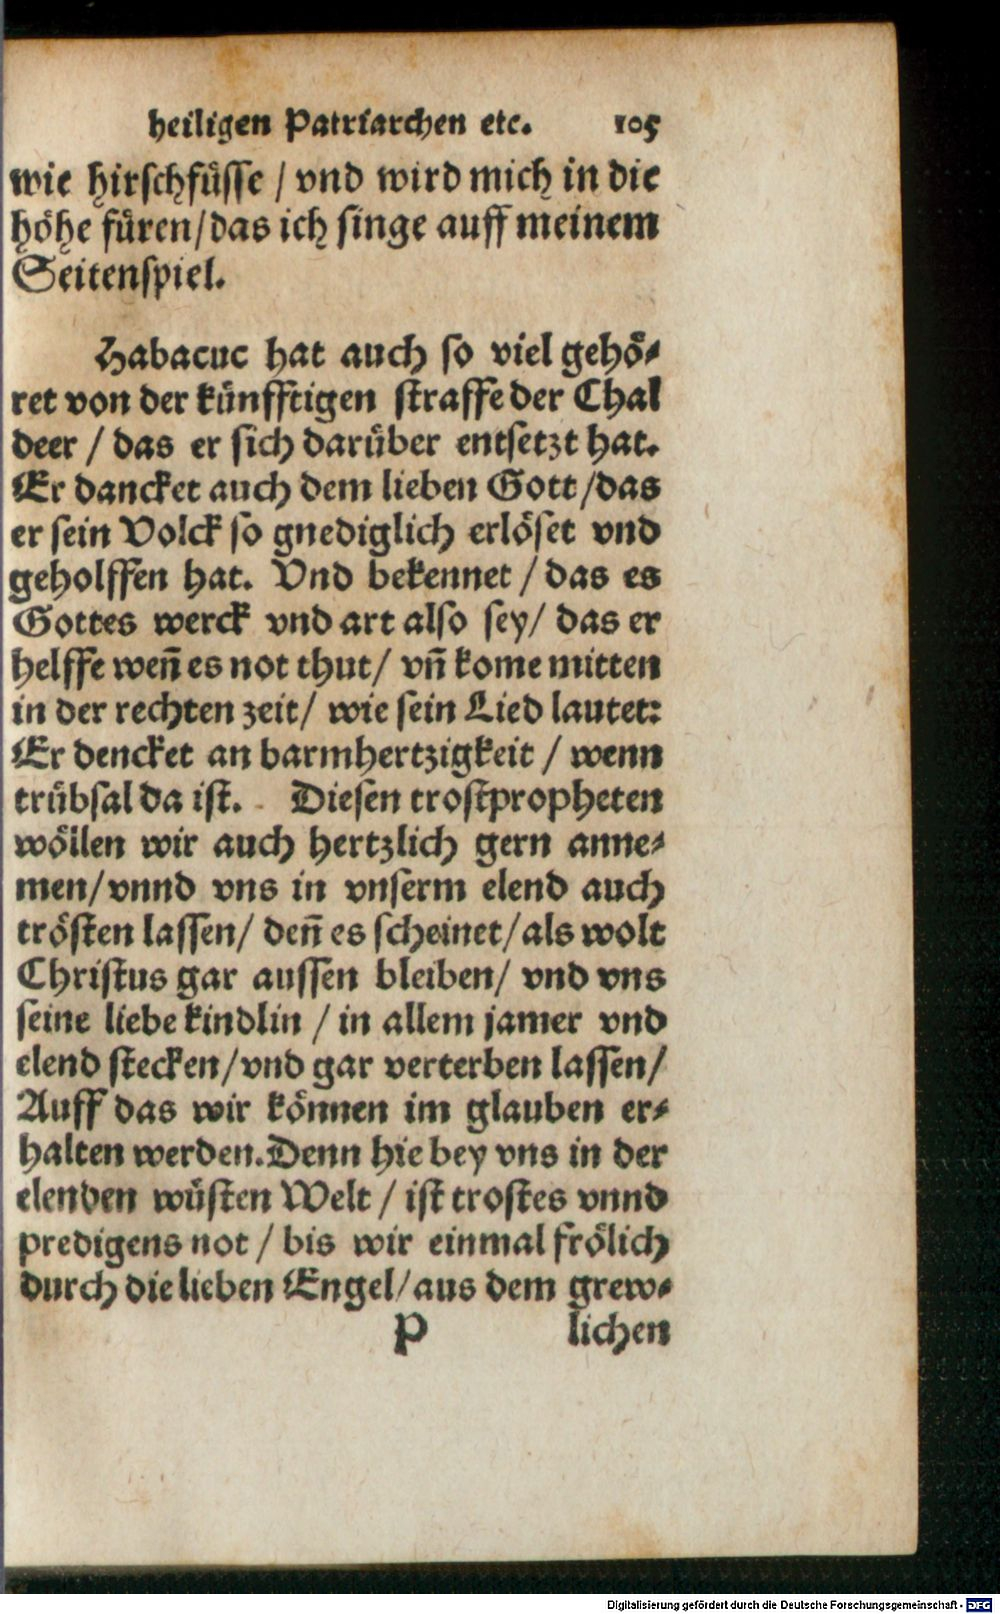 heiligen Patriarchen etc. 105
wie hirschfüsse / vnd wird mich in die
höhe füren/das ich singe auff meinem
Seitenspiel.
Habacuc hat auch so viel gehö-
ret von der künfftigen straffe der Chal
deer / das er sich darüber entsetzt hat.
Er dancket auch dem lieben Gott /das
er sein Volck so gnediglich erlöset vnd
geholffen hat. Vnd bekennet / das es
Gottes werck vnd art also sey/ das er
helffe weñ es not thut/ vñ kome mitten
in der rechten zeit/ wie sein Lied lautet:
Er dencket an barmhertzigkeit / wenn
trübsal da ist. Diesen trostpropheten
wöllen wir auch hertzlich gern anne-
men/vnnd vns in vnserm elend auch
trösten lassen/ deñ es scheinet/als wolt
Christus gar aussen bleiben/ vnd vns
seine liebe kindlin / in allem jamer vnd
elend stecken/vnd gar verterben lassen/
Auff das wir können im glauben er-
halten werden.Denn hie bey vns in der
elenden wüsten Welt / ist trostes vnnd
predigens not / bis wir einmal frölich
durch die lieben Engel/aus dem grew-
P lichen
Digitalisierung gefördert durch die Deutsche Forschungsgemeinschaft - DFG